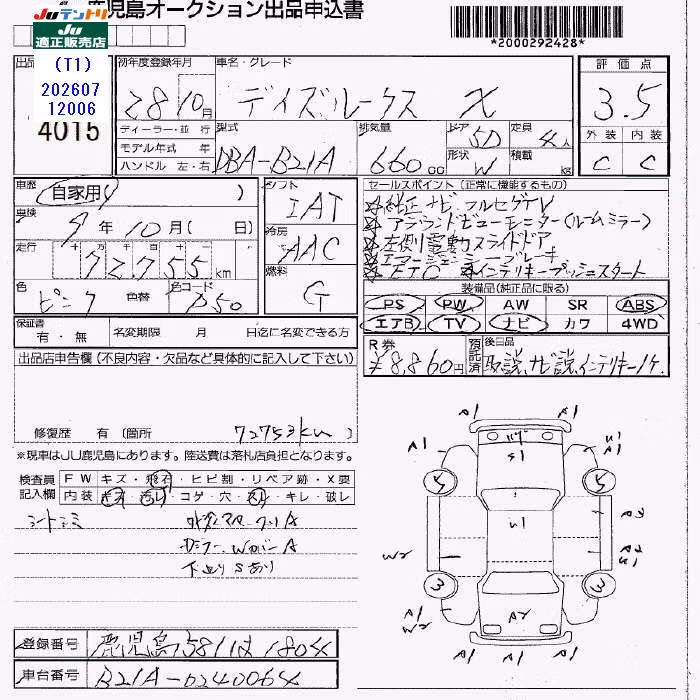 鹿児島オークション出品申込書
JUテントリ
JU
適正販売店
*2000292428*
(T1)
202607
12006
4015
初年度登録年月
28 10月
車名・グレード
デイズルークス X
評価点
3.5
外装 内装
C C
ディーラー・並行
モデル年式 年
ハンドル 左・右
型式
DBA-B21A
排気量
660 cc
ドア 5D
形状 W
定員 4人
積載 kg
車歴
自家用 ( )
車検
9年10月( 日)
走行
72755 km
色
ピンク
色替
色コード
P50
シフト
IAT
冷房
AAC
燃料
G
セールスポイント(正常に機能するもの)
純正ナビ フルセグTV
アラウンドビューモニター(ルームミラー)
左側電動スライドドア
エマージェンシーブレーキ
ETC インテリキープッシュスタート
装備品(純正品に限る)
PS PW AW SR ABS
エアB TV ナビ カワ 4WD
保証書
有・無
名変期限 月 日迄に名変できる方
R券
¥8,860円
預託済
後日品
取説、ナビ説、インテリキー1ヶ
出品店申告欄(不良内容・欠品など具体的に記入して下さい)
修復歴 有(箇所 72753km )
※現車はJU鹿児島にあります。陸送費は落札店負担となります。
検査員記入欄
FW キズ・飛石・ヒビ割・リペア跡・X要
内装 キズ・汚レ・コゲ・穴・スレ・キレ・破レ
シートシミ
下廻りSあり
A1 A1
A1 S1 U1
A1
5 5
U1 A2
W2 A2
U1
3 3
A1 A2 A1
W2
A1 A1 A1
登録番号
鹿児島581 1804
車台番号
B21A-0240064